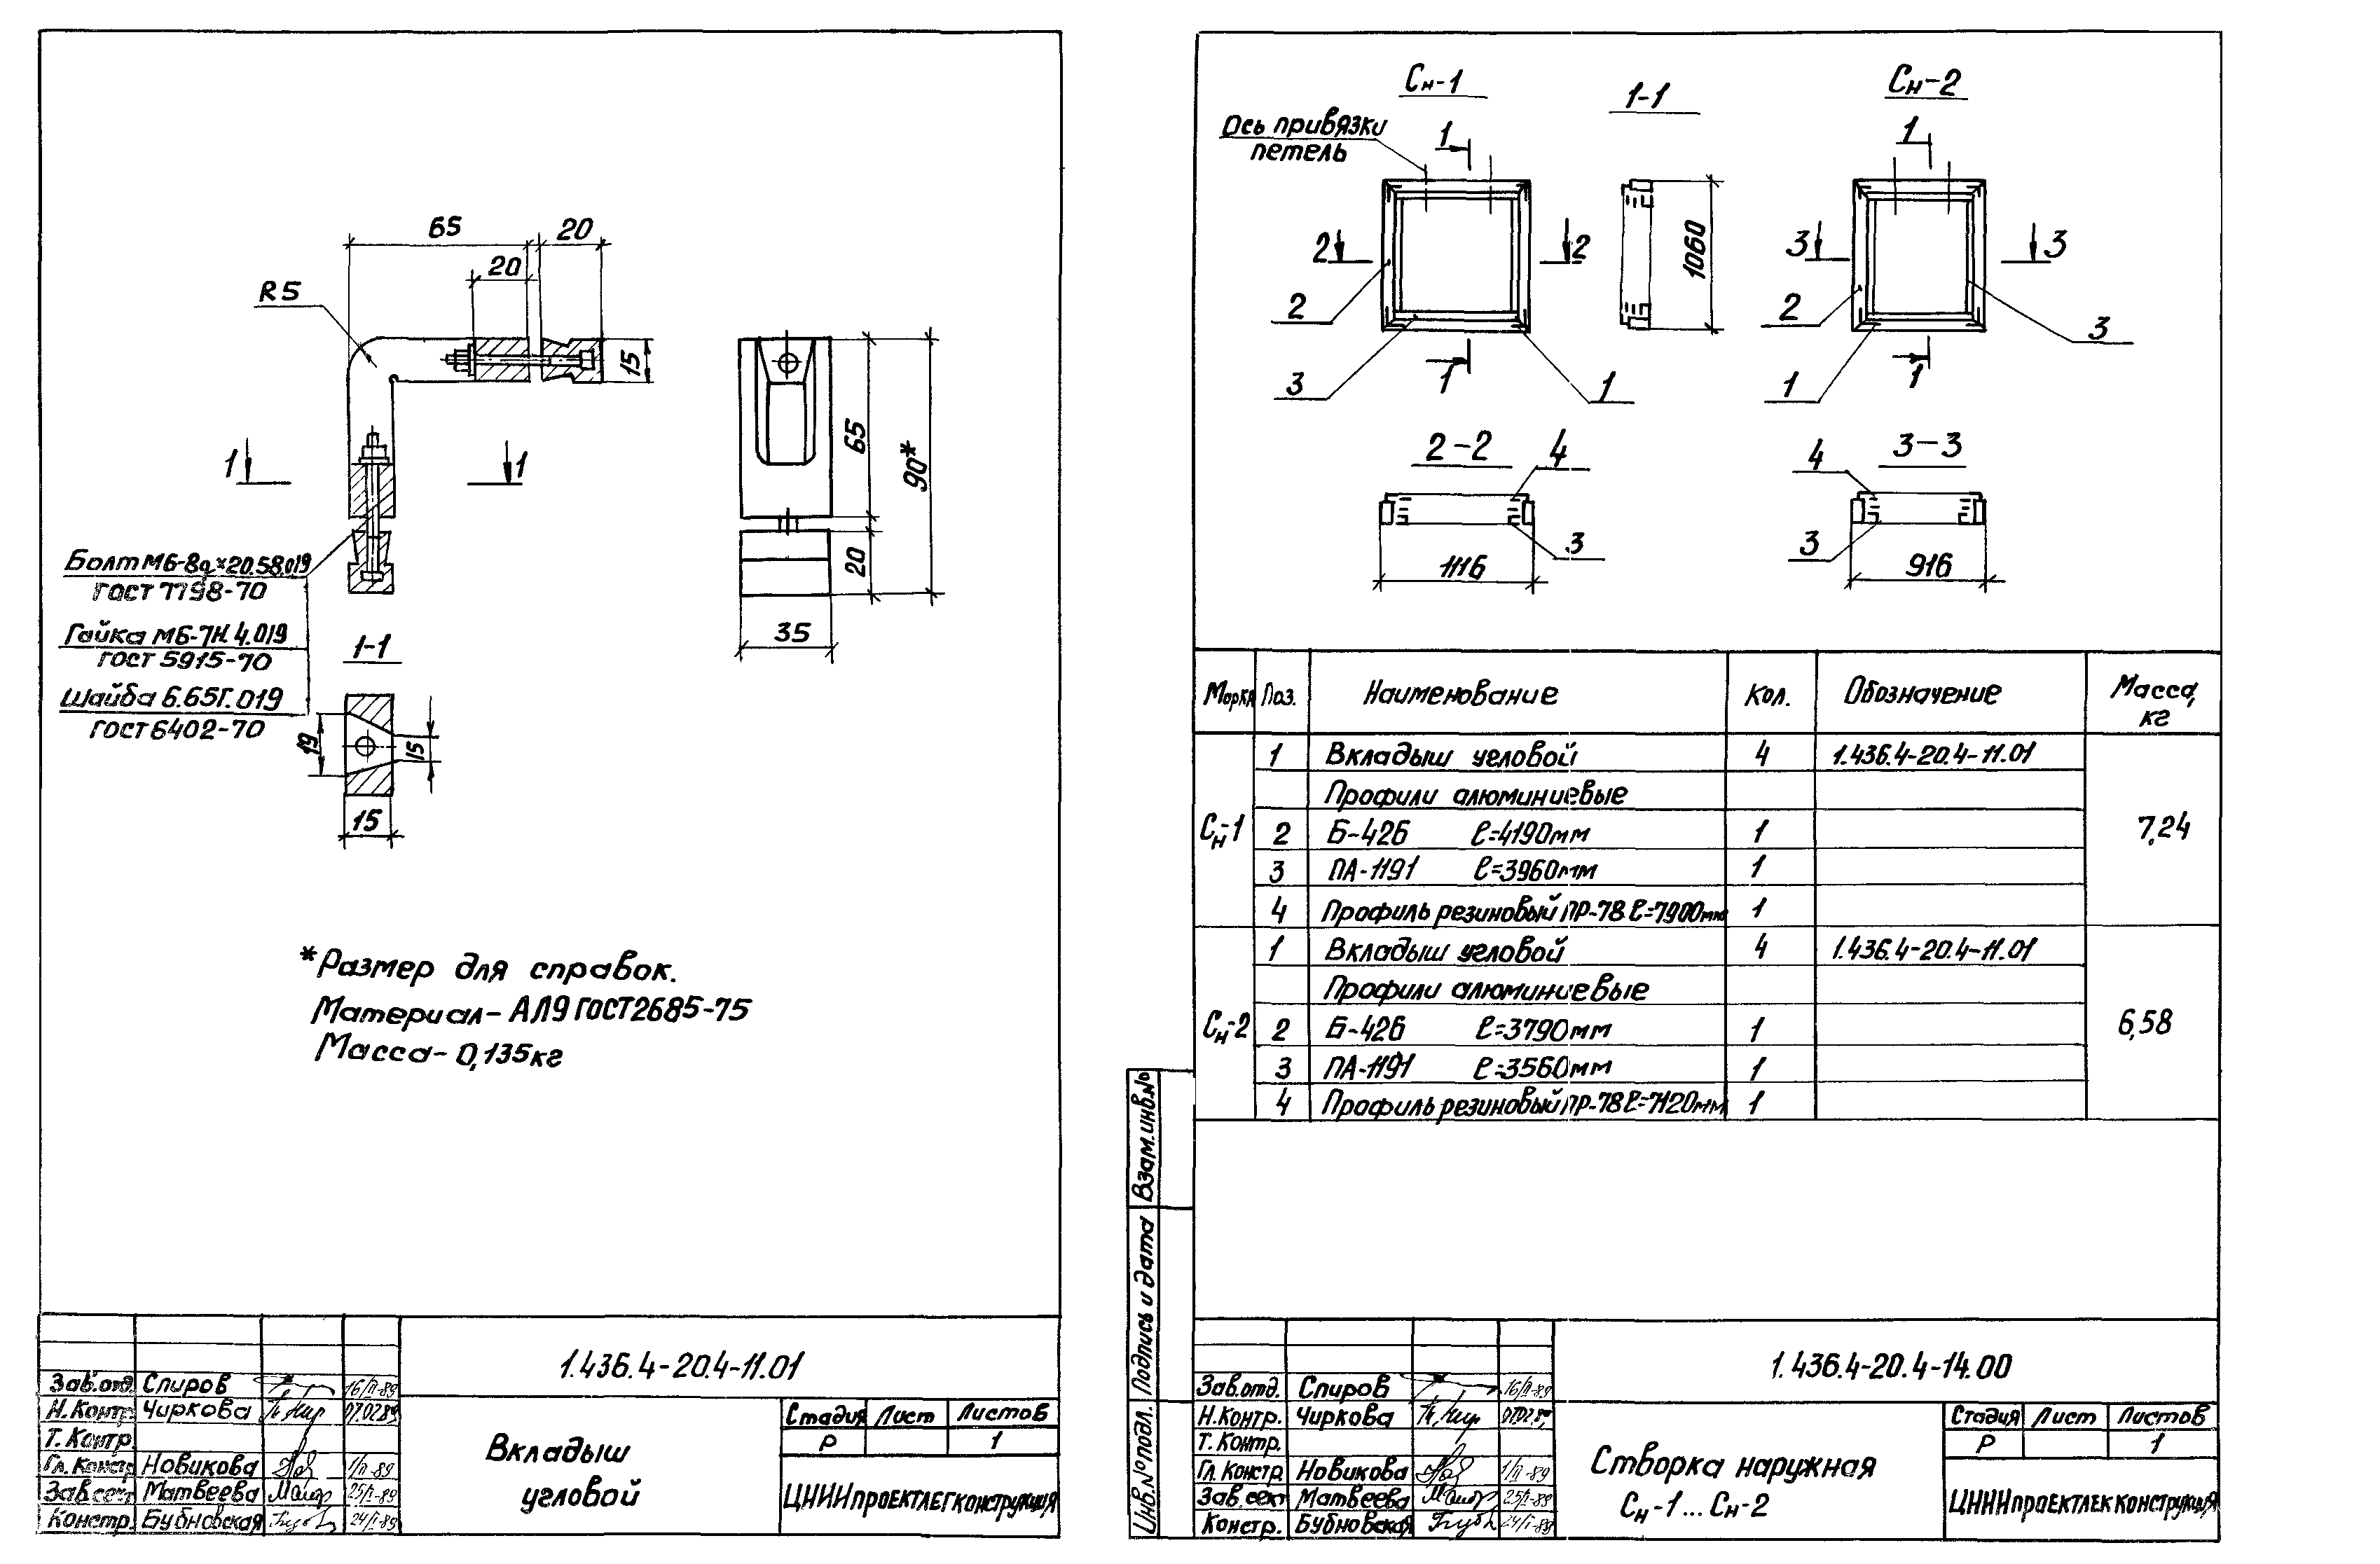 65
20
20
R5
15
1
1
65
90*
20
35
Болт М6-8g×20.58.019
ГОСТ 7798-70
Гайка М6-7Н.4.019
ГОСТ 5915-70
Шайба 6.65Г.019
ГОСТ 6402-70
1-1
19
15
15
*Размер для справок.
Материал- АЛ9 ГОСТ2685-75
Масса- 0,135кг
1.436.4-20.4-11.01
Зав.отд. Спиров 16/II-89
Н.Контр. Чиркова 07.02.89
Т. Контр.
Гл. Констр. Новикова 1/II-89
Зав.сект. Матвеева 25/I-89
Констр. Бубновская 24/I-89
Вкладыш
угловой
Стадия Лист Листов
Р 1
ЦНИИпроектлегконструкция
Сн-1
1-1
Сн-2
Ось привязки
петель
1
1
2
2
1060
3
3
2
2
3
3
1
1
1
1
2-2
4
4
3-3
3
3
1116
916
Марка Поз. Наименование Кол. Обозначение Масса,
кг
1 Вкладыш угловой 4 1.436.4-20.4-11.01
Профили алюминиевые
Сн-1 2 Б-426 ℓ=4190мм 1 7,24
3 ПА-1191 ℓ=3960мм 1
4 Профиль резиновый ПР-78 ℓ=7900мм 1
1 Вкладыш угловой 4 1.436.4-20.4-11.01
Профили алюминиевые
Сн-2 2 Б-426 ℓ=3790мм 1 6,58
3 ПА-1191 ℓ=3560мм 1
4 Профиль резиновый ПР-78 ℓ=7120мм 1
Взам.инв.№
Подпись и дата
Инв.№подл.
1.436.4-20.4-14.00
Зав.отд. Спиров 16/II-89
Н.Контр. Чиркова 07.02.89
Т. Контр.
Гл. Констр. Новикова 1/II-89
Зав.сект. Матвеева 25/I-89
Констр. Бубновская 24/I-89
Створка наружная
Сн-1...Сн-2
Стадия Лист Листов
Р 1
ЦНИИпроектлекконструкция